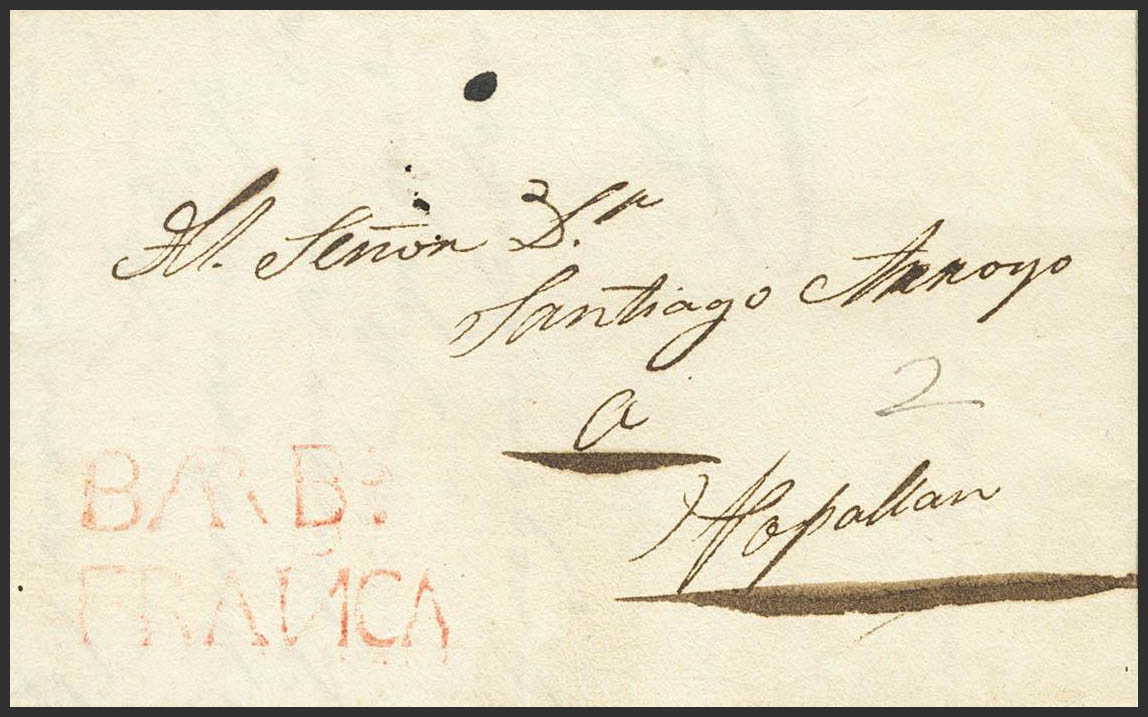 Al. Señor D.n
Santiago Arroyo
a
2
Popallan
BARBS
FRANCA